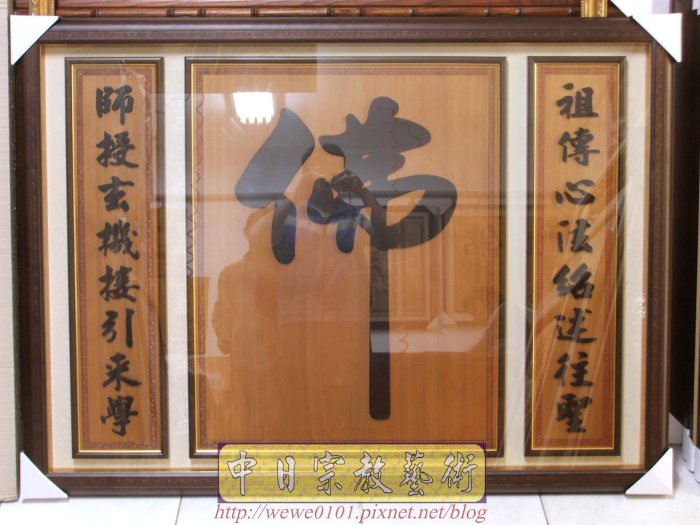 祖傳心法紹述往聖
佛
師授玄機接引來學
中日宗教藝術
http://wewe0101.pixnet.net/blog